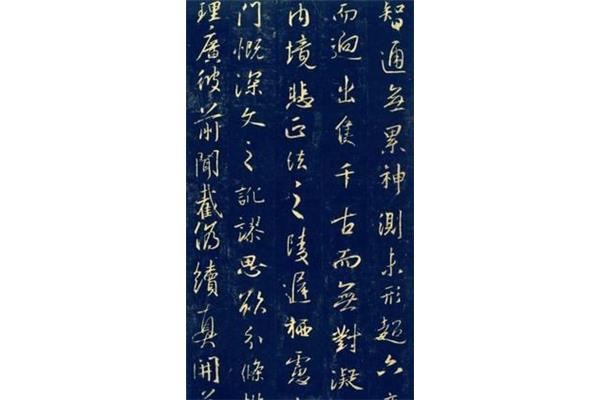 智通無累神測未形超六
而迥出隻千古而無對凝
內境悲正法之陵遲栖慮
門慨深文之訛謬思欲分條
理廣彼前聞截偽續真開